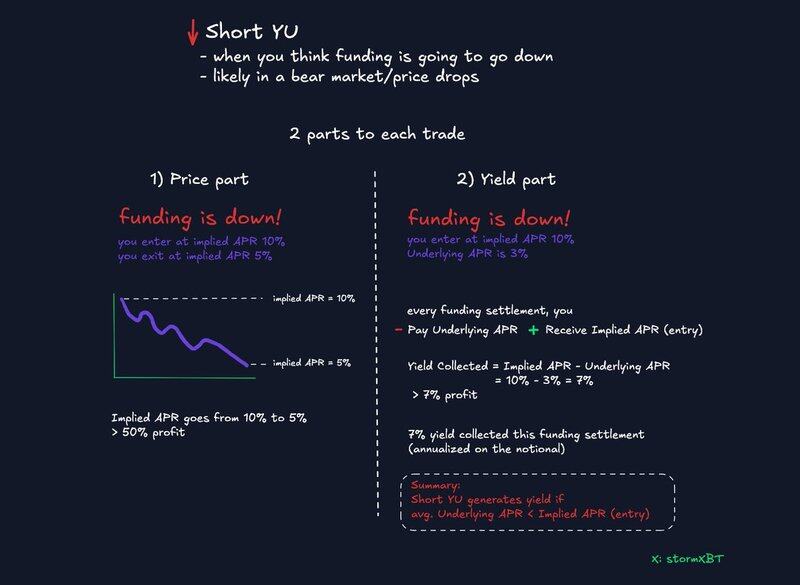 ↓ Short YU
- when you think funding is going to go down
- likely in a bear market/price drops
2 parts to each trade
1) Price part
funding is down!
you enter at implied APR 10%
you exit at implied APR 5%
implied APR = 10%
implied APR = 5%
Implied APR goes from 10% to 5%
> 50% profit
2) Yield part
funding is down!
you enter at implied APR 10%
Underlying APR is 3%
every funding settlement, you
- Pay Underlying APR + Receive Implied APR (entry)
Yield Collected = Implied APR - Underlying APR
= 10% - 3% = 7%
> 7% profit
7% yield collected this funding settlement
(annualized on the notional)
Summary:
Short YU generates yield if
avg. Underlying APR < Implied APR (entry)
X: stormXBT